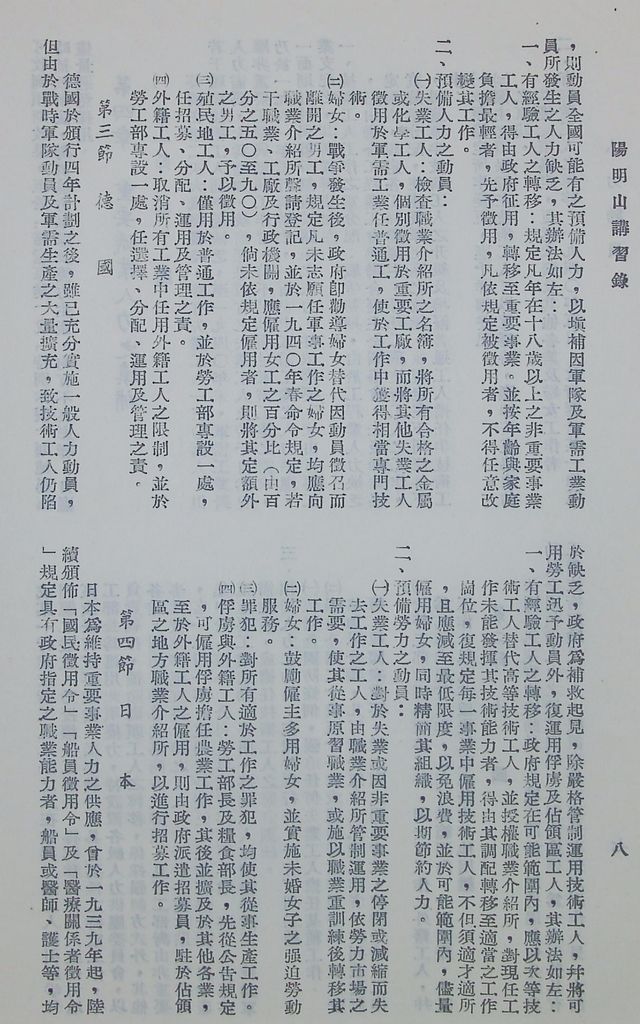 陽明山講習錄
八
，則動員全國可能有之預備人力，以塡補因軍隊及軍需工業動
員所發生之人力缺乏，其辦法如左：
一、有經驗工人之轉移：規定凡年在十八歲以上之非重要事業
工人，得由政府征用，轉移至重要事業。並按年齡與家庭
負擔最輕者，先予徵用，凡依規定被徵用者，不得任意改
變其工作。
二、預備人力之動員：
㈠失業工人：檢查職業介紹所之名簿，將所有合格之金屬
或化學工人，個別徵用於重要工廠，而將其他失業工人
徵用於軍需工業任普通工，使於工作中獲得相當專門技
術。
㈡婦女：戰爭發生後，政府卽勸導婦女替代因動員徵召而
離開之男工，規定凡未志願任軍事工作之婦女，均應向
職業介紹所聲請登記，並於一九四０年春命令規定，若
干職業、工廠及行政機關，應僱用女工之百分比（由百
分之五０至九０），倘未依規定僱用者，則將其定額外
之男工，予以徵用。
㈢殖民地工人：僅用於普通工作，並於勞工部專設一處，
任招募、分配、運用及管理之責。
㈣外籍工人：取消所有工業中任用外籍工人之限制，並於
勞工部專設一處，任選擇、分配、運用及管理之責。
第三節　德　國
德國於頒行四年計劃之後，雖已充分實施一般人力動員，
但由於戰時軍隊動員及軍需生產之大量擴充，致技術工人仍陷
於缺乏，政府爲補救起見，除嚴格管制運用技術工人，幷將可
用勞工迅予動員外，復運用俘虜及佔領區工人，其辦法如左：
一、有經驗工人之轉移：政府規定在可能範圍內，應以次等技
術工人替代高等技術工人，並授權職業介紹所，對現任工
作未能發揮其技術能力者，得由其調配轉移至適當之工作
崗位，復規定每一事業中僱用技術工人，不但須適才適所
，且應減至最低限度，以免浪費，並於可能範圍內，儘量
僱用婦女，同時精簡其組織，以期節約人力。
二、預備勞力之動員：
㈠失業工人：對於失業或因非重要事業之停閉或減縮而失
去工作之工人，由職業介紹所管制運用，依勞力市場之
需要，使其從事原習職業，或施以職業重訓練後轉移其
工作。
㈡婦女：鼓勵僱主多用婦女，並實施未婚女子之强迫勞動
服務。
㈢罪犯：對所有適於工作之罪犯，均使其從事生產工作。
㈣俘虜與外籍工人：勞工部長及糧食部長，先從公告規定
，可僱用俘虜擔任農業工作，其後並擴及於其他各業，
至於外籍工人之僱用，則由政府派遣招募員，駐於佔領
區之地方職業介紹所，以進行招募工作。
第四節　日　本
日本爲維持重要事業人力之供應，曾於一九三九年起，陸
續頒佈「國民徵用令」「船員徵用令」及「醫療關係者徵用令
」規定具有政府指定之職業能力者，船員或醫師、護士等，均